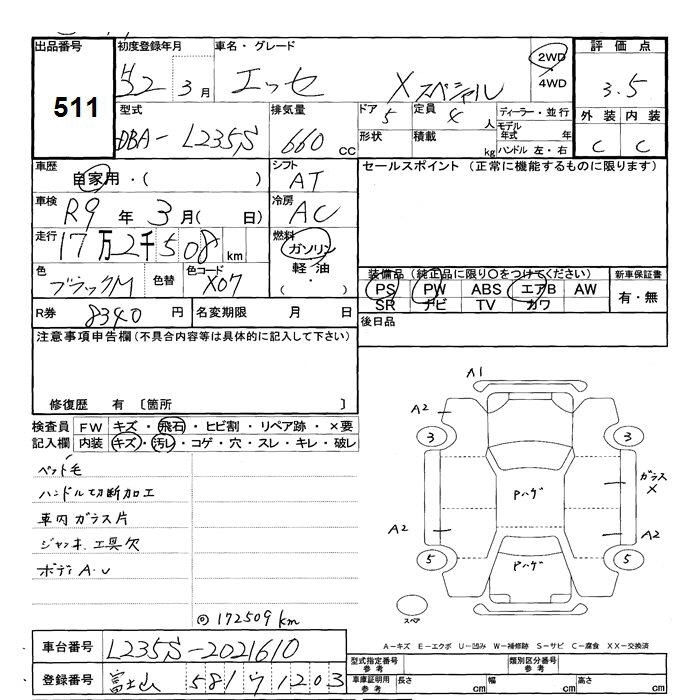 出品番号 初度登録年月 車名・グレード 評価点
511 H22 3月 エッセ Xスペシャル 2WD・4WD 3.5
型式 排気量 ドア 5 定員 4人 ディーラー・並行 外装 内装
DBA- L235S 660cc 形状 積載 kg モデル年式 年 ハンドル 左・右 C C
車歴 自家用・( ) シフト AT セールスポイント (正常に機能するものに限ります)
車検 R9年3月( 日) 冷房 AC
走行 17万2千508km 燃料 ガソリン 軽油 ( ・ )
色 ブラックM 色替 色コード X07
装備品 (純正品に限り○をつけてください) 新車保証書
PS PW ABS エアB AW 有・無
SR ナビ TV カワ
R券 8340円 名変期限 月 日 後日品
注意事項申告欄(不具合内容等は具体的に記入して下さい)
修復歴 有 〔箇所 〕
検査員 FW キズ・飛石・ヒビ割・リペア跡・×要
記入欄 内装 キズ・汚レ・コゲ・穴・スレ・キレ・破レ
ペット毛
ハンドル切断加工
車内ガラス片
ジャッキ、工具欠
ボディA・U
◎172509km
A1
A2
3 3
Pハゲ
ガラス
X
A2 A2
Pハゲ
5 5
スペア
A-キズ E-エクボ U-凹み W-補修跡 S-サビ C-腐食 XX-交換済
車台番号 L235S-2021610
型式指定番号 参考 類別区分番号 参考
登録番号 富士山 581 ワ 1203
車庫証明用 参考 長さ cm 幅 cm 高さ cm